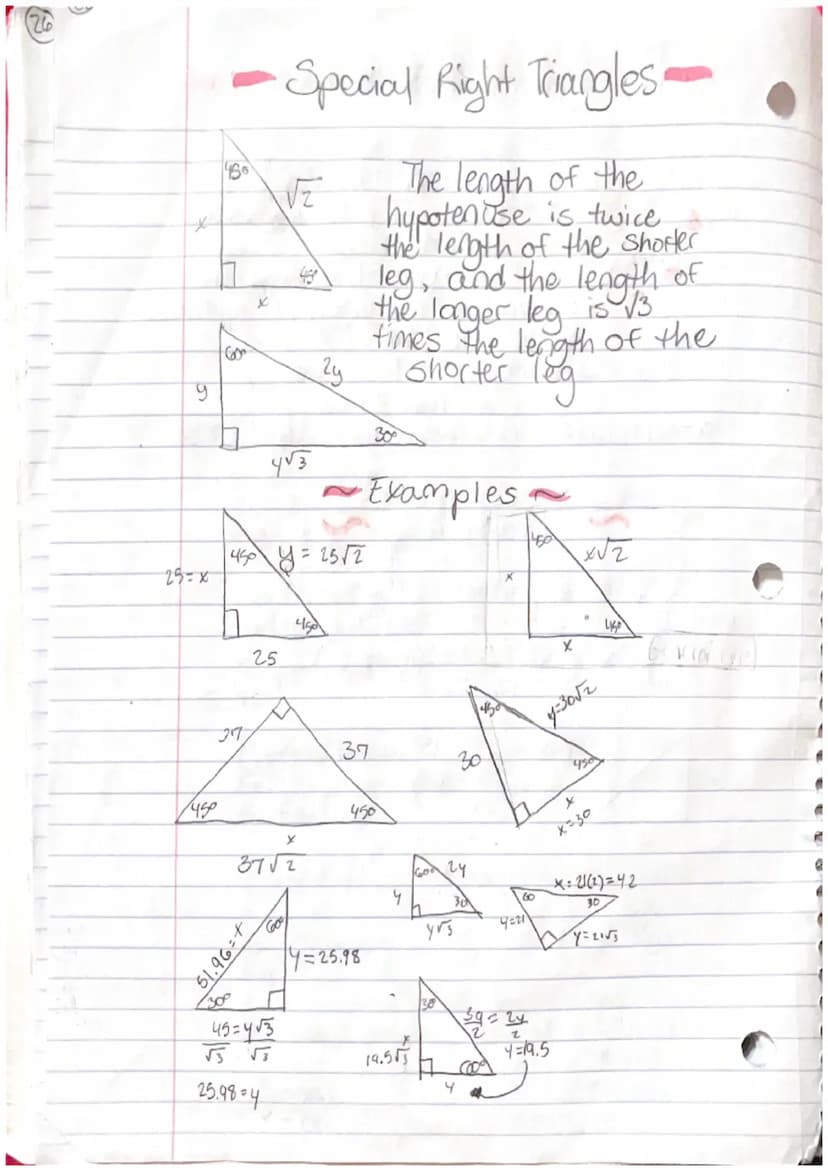 26
Special Right Triangles
45°
√2
x
45°
x
The length of the
hypotenuse is twice
the length of the shorter
leg, and the length of
the longer leg is √3
times the length of the
shorter leg
60°
2y
y
30°
y√3
~ Examples ~
45°
y = 25√2
25 = x
45°
25
45°
x√2
x
45°
x
37
37
45°
45°
x
37√2
45°
y=30√2
30
45°
x
x=30
60°
2y
y
30
y√3
x=21(2)=42
60
30
y=21
y=21√3
51.96=x
60°
y=25.98
30°
45=y√3
√3 √3
25.98=y
30°
39 = 2y
2 2
y=19.5
x
19.5√3
60°
y